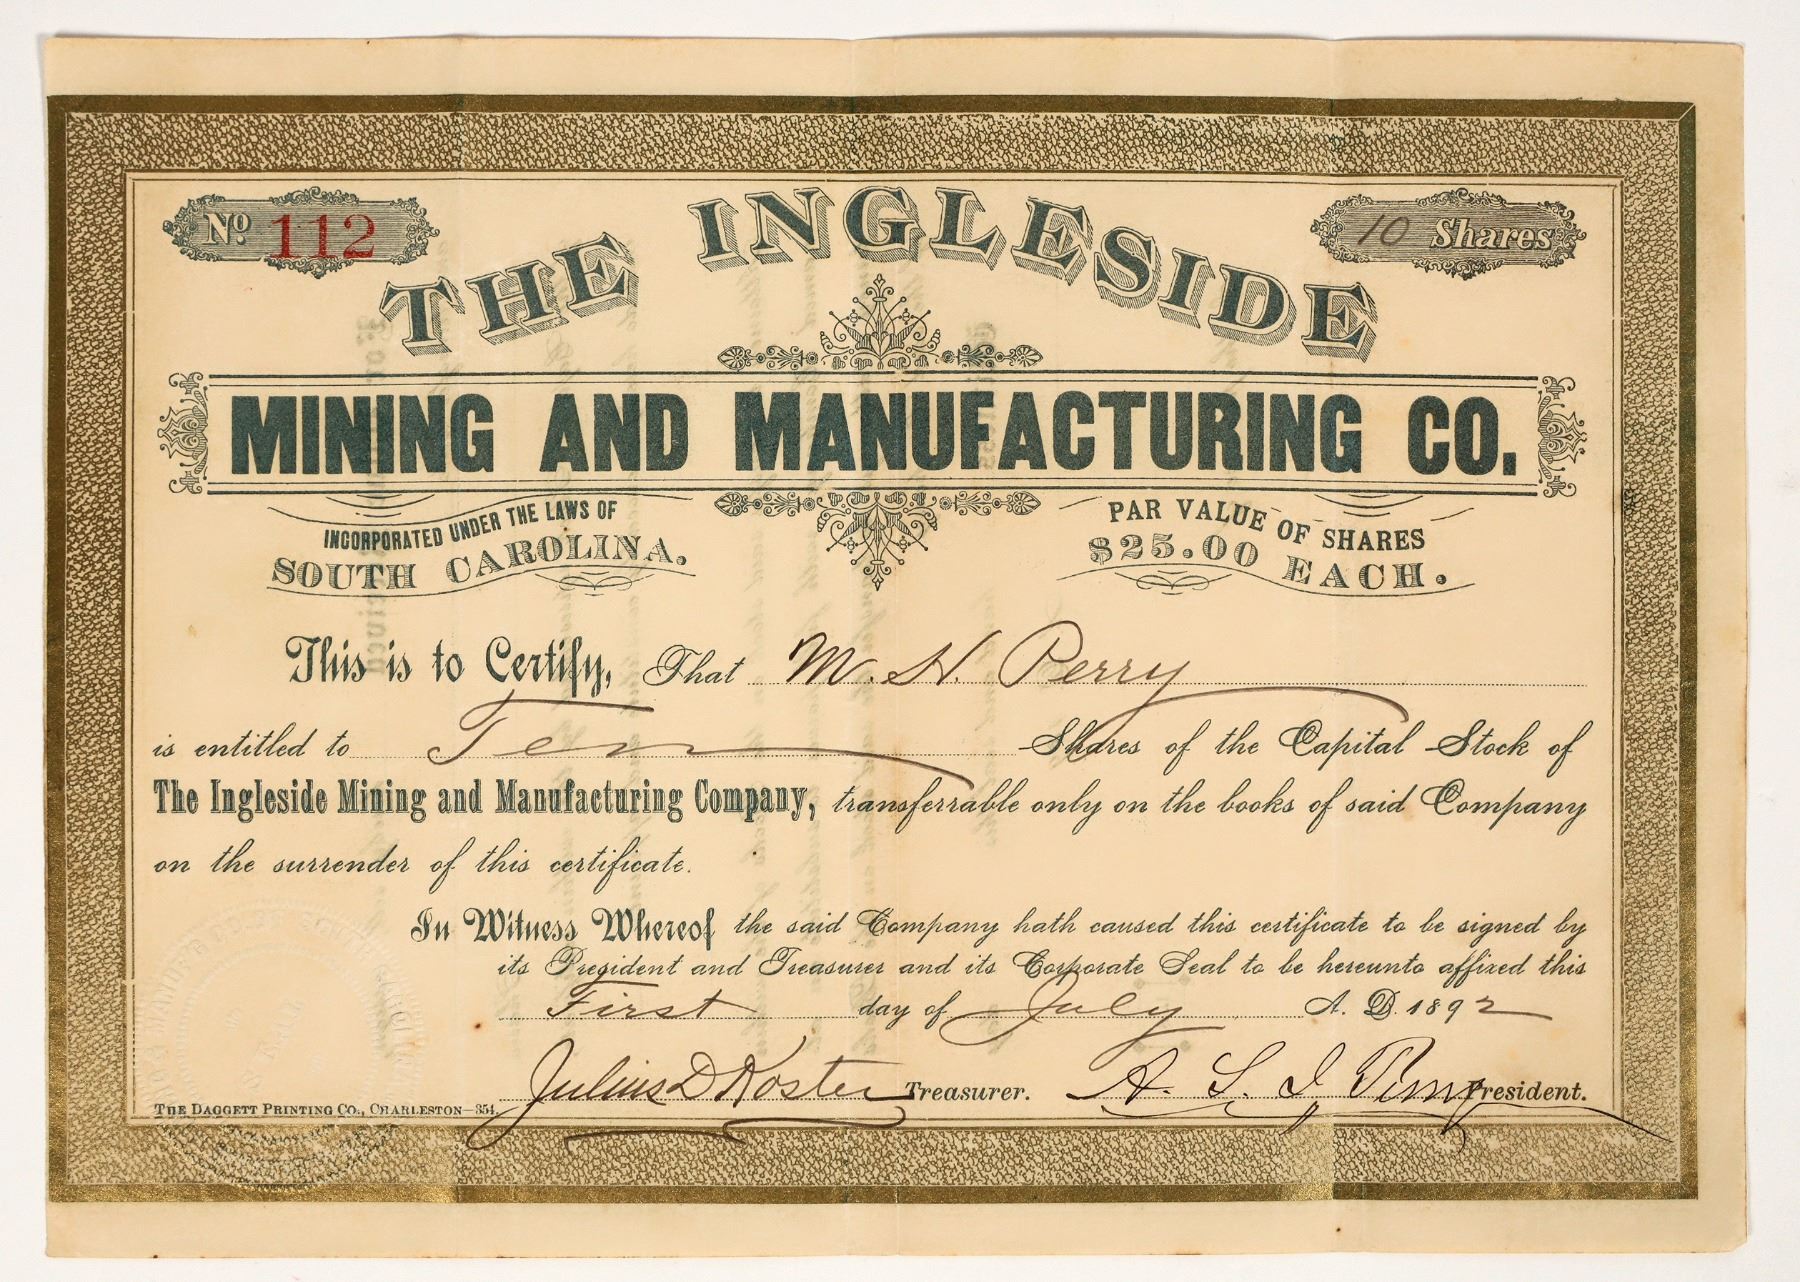 No. 112
10 Shares
THE INGLESIDE
MINING AND MANUFACTURING CO.
INCORPORATED UNDER THE LAWS OF
SOUTH CAROLINA.
PAR VALUE OF SHARES
$25.00 EACH.
This is to Certify, That M. H. Perry
is entitled to Ten Shares of the Capital Stock of
The Ingleside Mining and Manufacturing Company, transferrable only on the books of said Company
on the surrender of this certificate.
In Witness Whereof the said Company hath caused this certificate to be signed by
its President and Treasurer and its Corporate Seal to be hereunto affixed this
First day of July A. D. 1892
Julius D Koster Treasurer. A. S. J. President.
THE DAGGETT PRINTING CO., CHARLESTON—354.